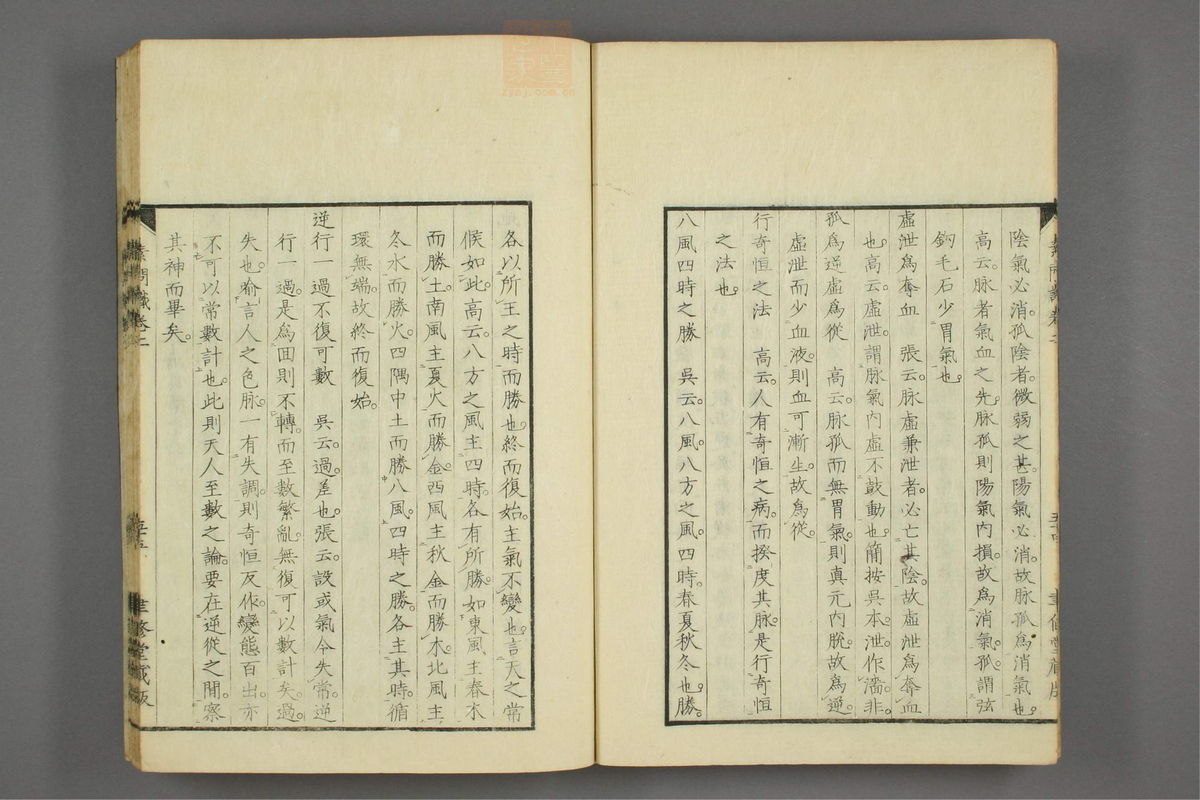 陰氣必消。孤陰者。微弱之甚。陽氣必消。故脉孤爲消氣也。
高云。脉者氣血之先。脉孤則陽氣內損。故爲消氣。孤。謂弦
鈎毛石少胃氣也。
虛泄爲奪血　張云。脉虛兼泄者。必亡其陰。故虛泄爲奪血
也。高云。虛泄。謂脉氣內虛不鼓動也。簡按吳本。泄作濇。非。
孤爲逆虛爲從　高云。脉孤而無胃氣。則真元內脫。故爲逆。
虛泄而少血液。則血可漸生。故爲從。
行奇恒之法　高云。人有奇恒之病。而揆度其脉。是行奇恒
之法也。
八風四時之勝　吳云。八風。八方之風。四時。春夏秋冬也。勝。
各以所王之時而勝也。終而復始。主氣不變也。言天之常
候如此。高云。八方之風。主四時。各有所勝。如東風主春木
而勝土。南風主夏火而勝金。西風主秋金而勝木。北風主
冬水而勝火。四隅中土而勝八風。四時之勝。各主其時。循
環無端。故終而復始。
逆行一過不復可數　吳云。過。差也。張云。設或氣令失常。逆
行一過。是爲回則不轉。而至數繁亂。無復可以數計矣。過。
失也。喻言人之色脉。一有失調。則奇恒反作。變態百出。亦
不可以常數計也。此則天人至數之論。要在逆從之間。察
其神而畢矣。
素問識卷二
聿修堂藏版